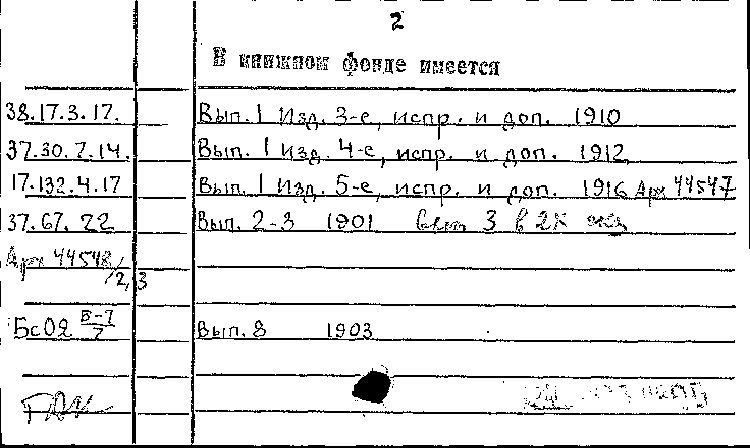 2
В книжном фонде имеется
38.17.3.17. Вып. 1 Изд. 3-е, испр. и доп. 1910
37.30.7.14. Вып. 1 изд. 4-е, испр. и доп. 1912
17.132.4.17 Вып. 1 Изд. 5-е, испр. и доп. 1916 Арх 44547
37.67.22 Вып. 2-3 1901 3 в 2х
Арх 44548/2,3
Бс02 Вып. 8 1903